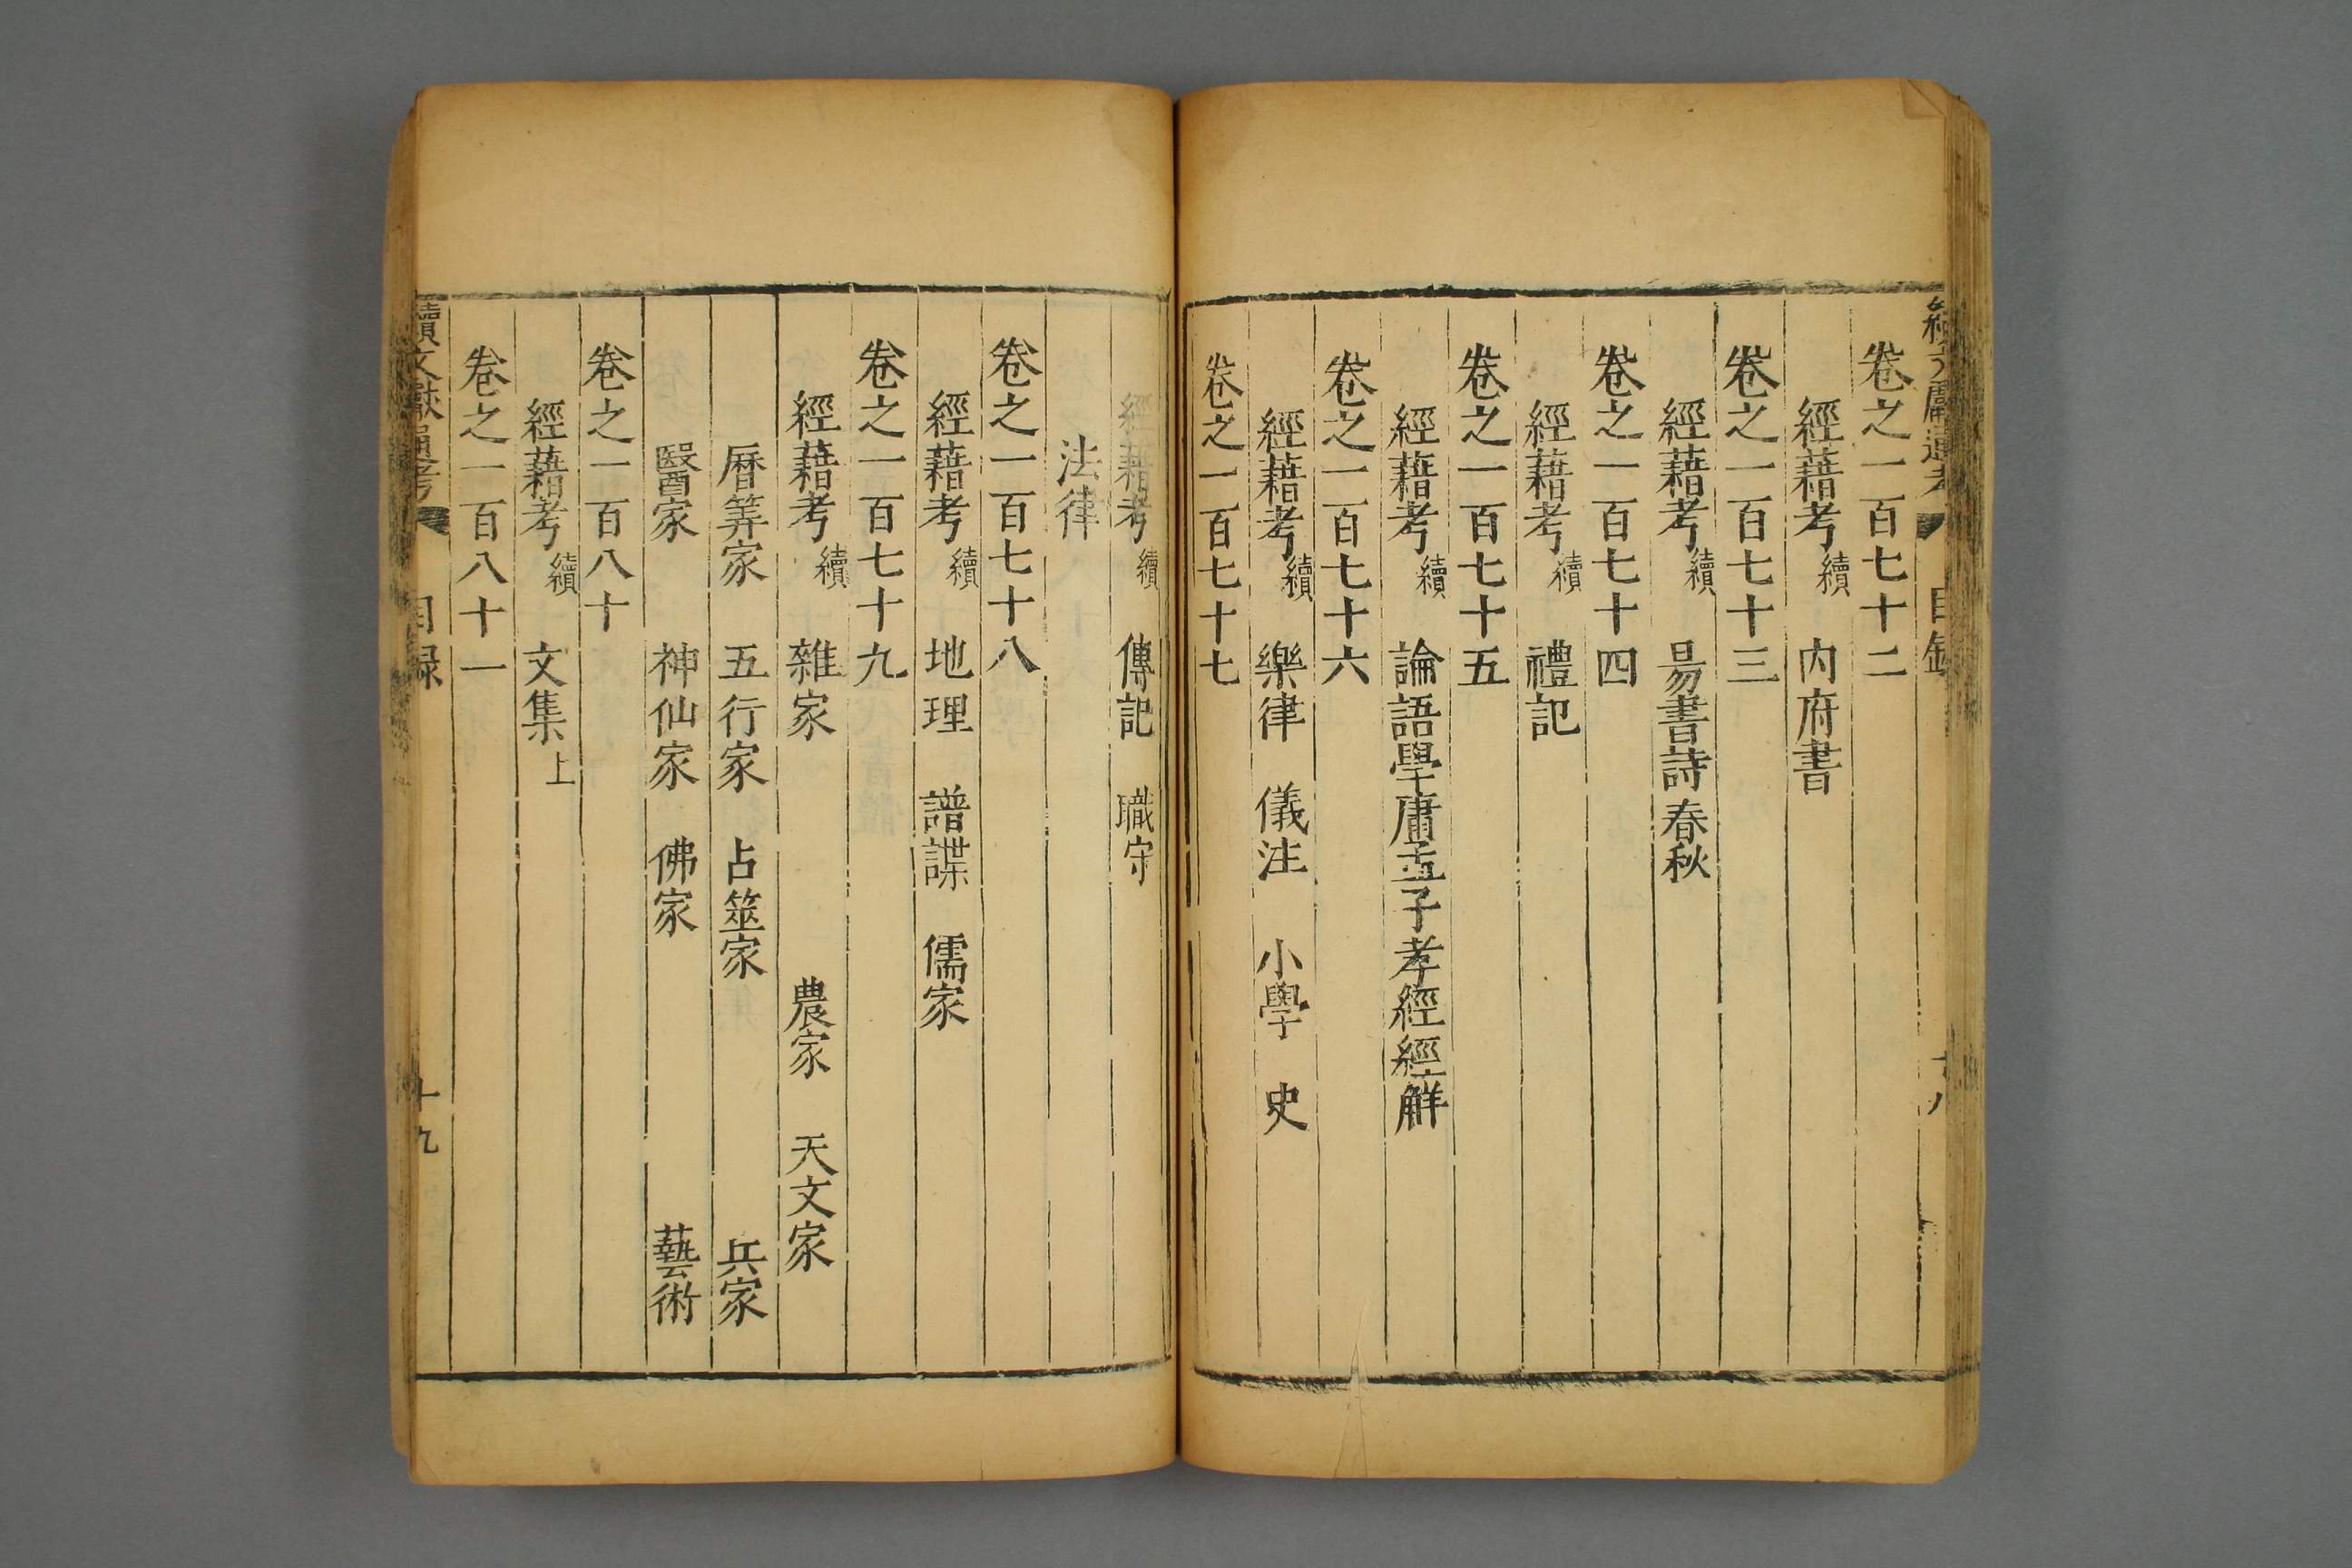 續文獻通考 目錄 十八
卷之一百七十二
經藉考 續 内府書
卷之一百七十三
經藉考 續 易書詩春秋
卷之一百七十四
經藉考 續 禮記
卷之一百七十五
經藉考 續 論語學庸孟子孝經經觧
卷之一百七十六
經藉考 續 樂律 儀注 小學 史
卷之一百七十七
經藉考 續 傳記 職守
法律
卷之一百七十八
經藉考 續 地理 譜諜 儒家
卷之一百七十九
經藉考 續 雜家 農家 天文家
曆筭家 五行家 占筮家 兵家
醫家 神仙家 佛家 藝術
卷之一百八十
經藉考 續 文集 上
卷之一百八十一
續文獻通考 目録 十九